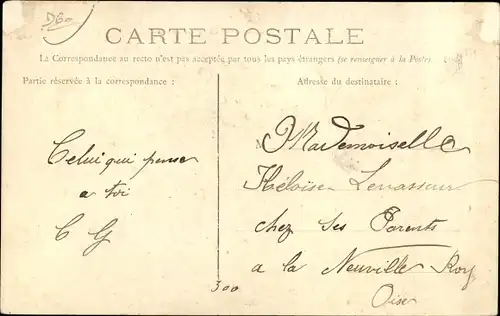 D60
CARTE POSTALE
La Correspondance au recto n'est pas acceptée par tous les pays étrangers (se renseigner à la Poste)
Partie réservée à la correspondance :
Adresse du destinataire :
Celui qui pense
a toi
C G
M Mademoiselle
Héloïse Levasseur
chez Ses Parents
a la Neuville Roy
Oise
300